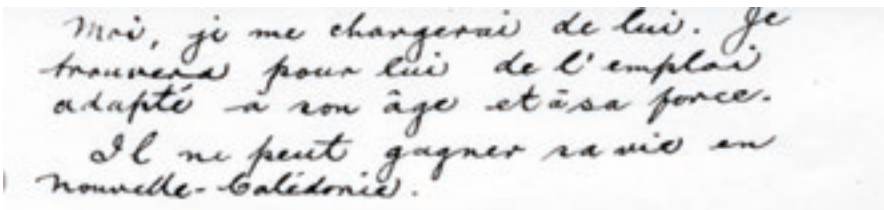 Moi, je me chargerai de lui. Je
trouverai pour lui de l'emploi
adapté à son âge et à sa force.
Il ne peut gagner sa vie en
Nouvelle-Calédonie.